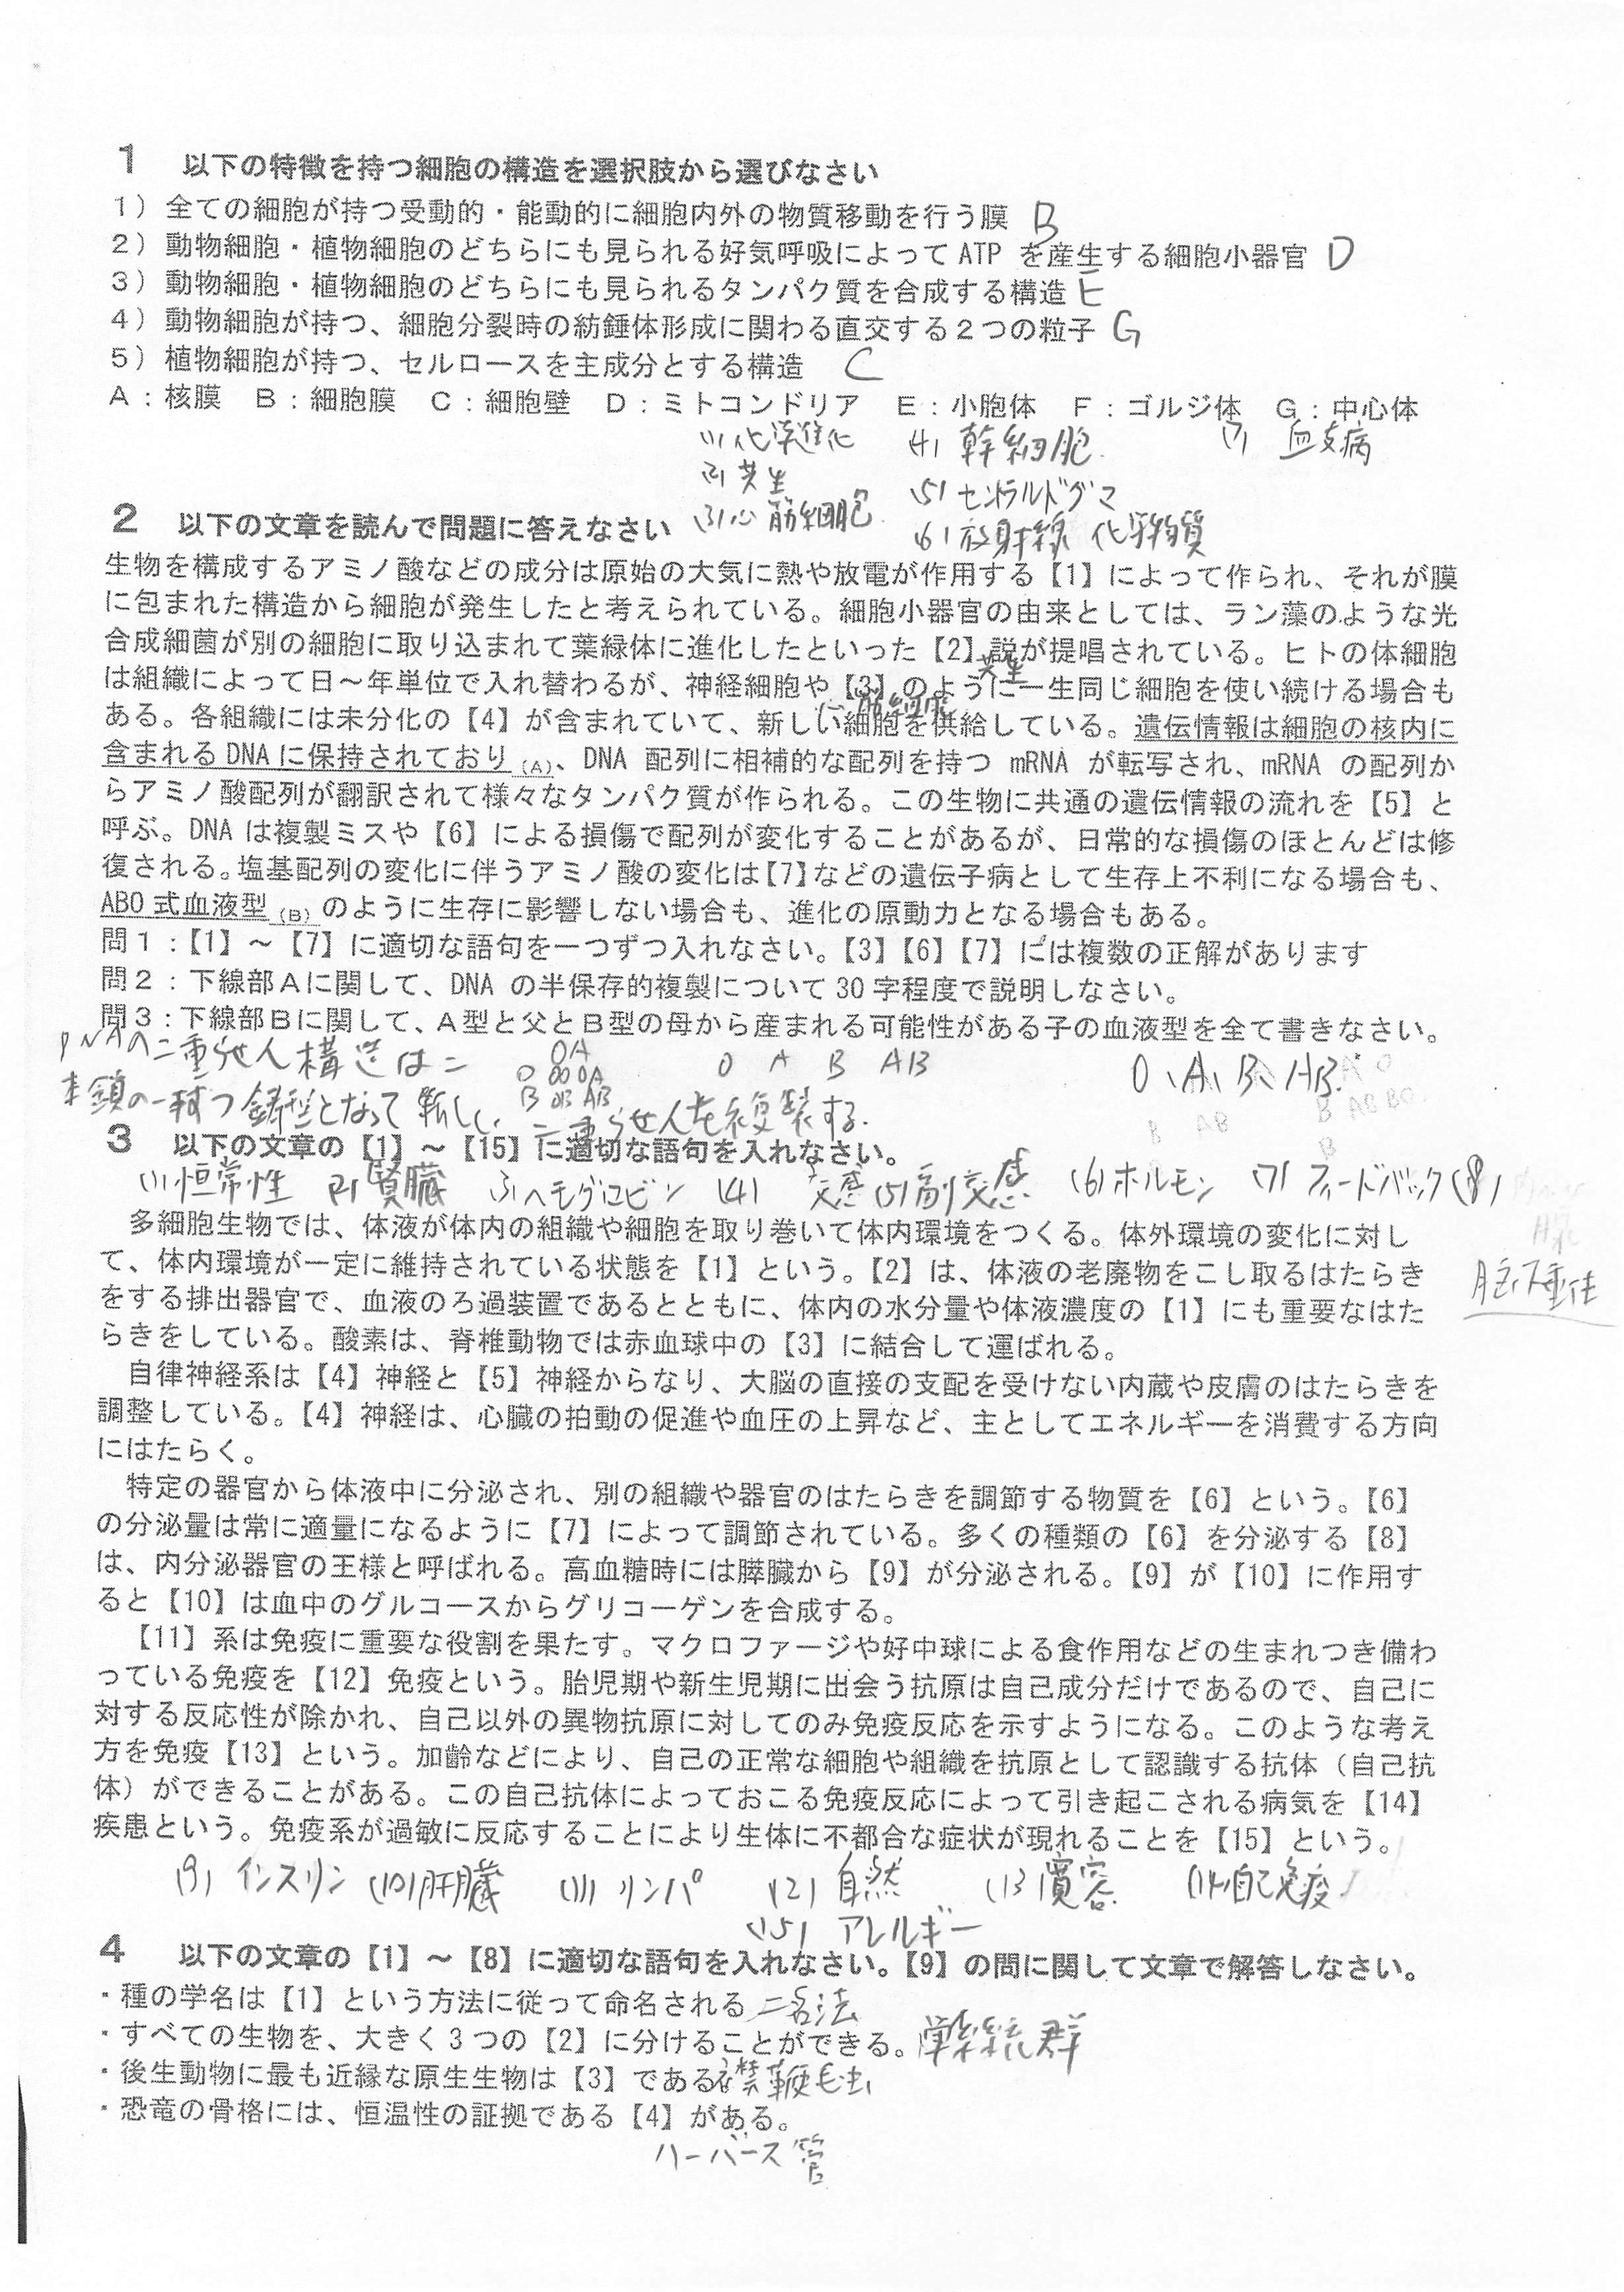 1 以下の特徴を持つ細胞の構造を選択肢から選びなさい
1）全ての細胞が持つ受動的・能動的に細胞内外の物質移動を行う膜 B
2）動物細胞・植物細胞のどちらにも見られる好気呼吸によって ATP を産生する細胞小器官 D
3）動物細胞・植物細胞のどちらにも見られるタンパク質を合成する構造 E
4）動物細胞が持つ、細胞分裂時の紡錘体形成に関わる直交する２つの粒子 G
5）植物細胞が持つ、セルロースを主成分とする構造 C
A：核膜 B：細胞膜 C：細胞壁 D：ミトコンドリア E：小胞体 F：ゴルジ体 G：中心体
(1) 化学進化 (4) 幹細胞 (7) 血友病
(2) 共生
(5) セントラルドグマ
2 以下の文章を読んで問題に答えなさい (3) 心筋細胞
(6) 放射線 化学物質
生物を構成するアミノ酸などの成分は原始の大気に熱や放電が作用する【1】によって作られ、それが膜
に包まれた構造から細胞が発生したと考えられている。細胞小器官の由来としては、ラン藻のような光
合成細菌が別の細胞に取り込まれて葉緑体に進化したといった【2】説が提唱されている。ヒトの体細胞
共生
は組織によって日～年単位で入れ替わるが、神経細胞や【3】のように一生同じ細胞を使い続ける場合も
心筋細胞
ある。各組織には未分化の【4】が含まれていて、新しい細胞を供給している。遺伝情報は細胞の核内に
含まれる DNA に保持されており (A)、DNA 配列に相補的な配列を持つ mRNA が転写され、mRNA の配列か
らアミノ酸配列が翻訳されて様々なタンパク質が作られる。この生物に共通の遺伝情報の流れを【5】と
呼ぶ。DNA は複製ミスや【6】による損傷で配列が変化することがあるが、日常的な損傷のほとんどは修
復される。塩基配列の変化に伴うアミノ酸の変化は【7】などの遺伝子病として生存上不利になる場合も、
ABO 式血液型 (B) のように生存に影響しない場合も、進化の原動力となる場合もある。
問１：【1】～【7】に適切な語句を一つずつ入れなさい。【3】【6】【7】には複数の正解があります
問２：下線部Ａに関して、DNA の半保存的複製について 30 字程度で説明しなさい。
問３：下線部Ｂに関して、Ａ型と父とＢ型の母から産まれる可能性がある子の血液型を全て書きなさい。
DNAの二重らせん構造は二
OA
O OO OA
B OB AB
O A B AB
O、A、B、AB.
本鎖の一本ずつ鋳型となって新しい二重らせんを複製する.
3 以下の文章の【1】～【15】に適切な語句を入れなさい。
(1) 恒常性 (2) 腎臓 (3) ヘモグロビン (4) 交感 (5) 副交感 (6) ホルモン (7) フィードバック (8)
多細胞生物では、体液が体内の組織や細胞を取り巻いて体内環境をつくる。体外環境の変化に対し
て、体内環境が一定に維持されている状態を【1】という。【2】は、体液の老廃物をこし取るはたらき
脳下垂体
をする排出器官で、血液のろ過装置であるとともに、体内の水分量や体液濃度の【1】にも重要なはた
らきをしている。酸素は、脊椎動物では赤血球中の【3】に結合して運ばれる。
自律神経系は【4】神経と【5】神経からなり、大脳の直接の支配を受けない内蔵や皮膚のはたらきを
調整している。【4】神経は、心臓の拍動の促進や血圧の上昇など、主としてエネルギーを消費する方向
にはたらく。
特定の器官から体液中に分泌され、別の組織や器官のはたらきを調節する物質を【6】という。【6】
の分泌量は常に適量になるように【7】によって調節されている。多くの種類の【6】を分泌する【8】
は、内分泌器官の王様と呼ばれる。高血糖時には膵臓から【9】が分泌される。【9】が【10】に作用す
ると【10】は血中のグルコースからグリコーゲンを合成する。
【11】系は免疫に重要な役割を果たす。マクロファージや好中球による食作用などの生まれつき備わ
っている免疫を【12】免疫という。胎児期や新生児期に出会う抗原は自己成分だけであるので、自己に
対する反応性が除かれ、自己以外の異物抗原に対してのみ免疫反応を示すようになる。このような考え
方を免疫【13】という。加齢などにより、自己の正常な細胞や組織を抗原として認識する抗体（自己抗
体）ができることがある。この自己抗体によっておこる免疫反応によって引き起こされる病気を【14】
疾患という。免疫系が過敏に反応することにより生体に不都合な症状が現れることを【15】という。
(9) インスリン (10) 肝臓 (11) リンパ (12) 自然 (13) 寛容 (14) 自己免疫
(15) アレルギー
4 以下の文章の【1】～【8】に適切な語句を入れなさい。【9】の問に関して文章で解答しなさい。
・種の学名は【1】という方法に従って命名される 二名法
・すべての生物を、大きく３つの【2】に分けることができる。 単系統群
・後生動物に最も近縁な原生生物は【3】である 襟鞭毛虫
・恐竜の骨格には、恒温性の証拠である【4】がある。
ハーバース管